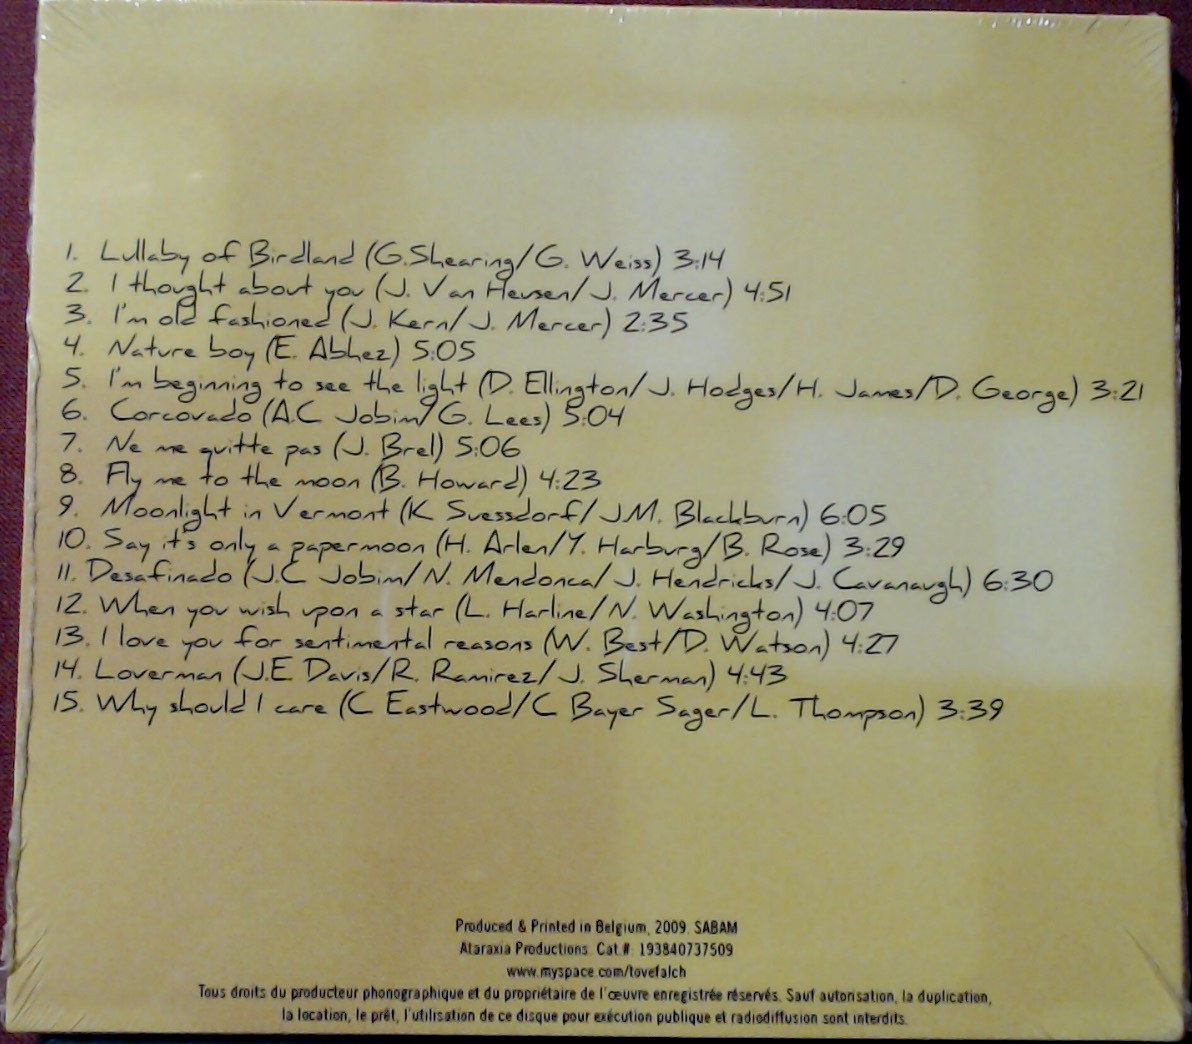 1. Lullaby of Birdland (G.Shearing/G. Weiss) 3:14
2. I thought about you (J. Van Heusen/J. Mercer) 4:51
3. I'm old fashioned (J. Kern/J. Mercer) 2:35
4. Nature boy (E. Abhez) 5:05
5. I'm beginning to see the light (D. Ellington/J. Hodges/H. James/D. George) 3:21
6. Corcovado (A.C Jobim/G. Lees) 5:04
7. Ne me quitte pas (J. Brel) 5:06
8. Fly me to the moon (B. Howard) 4:23
9. Moonlight in Vermont (K Suessdorf/J.M. Blackburn) 6:05
10. Say it's only a papermoon (H. Arlen/Y. Harburg/B. Rose) 3:29
11. Desafinado (J.C Jobim/N. Mendonca/J. Hendricks/J. Cavanaugh) 6:30
12. When you wish upon a star (L. Harline/N. Washington) 4:07
13. I love you for sentimental reasons (W. Best/D. Watson) 4:27
14. Loverman (J.E. Davis/R. Ramirez/J. Sherman) 4:43
15. Why should I care (C Eastwood/C Bayer Sager/L. Thompson) 3:39
Produced & Printed in Belgium, 2009. SABAM
Ataraxia Productions. Cat.#. 193840737509
www.myspace.com/tovefalch
Tous droits du producteur phonographique et du propriétaire de l'œuvre enregistrée réservés. Sauf autorisation, la duplication,
la location, le prêt, l'utilisation de ce disque pour exécution publique et radiodiffusion sont interdits.